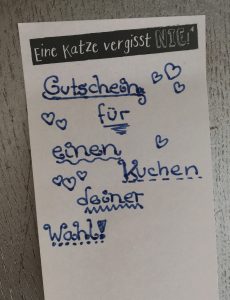 Eine Katze vergisst NIE!
Gutschein
für
einen
Kuchen
deiner
Wahl!